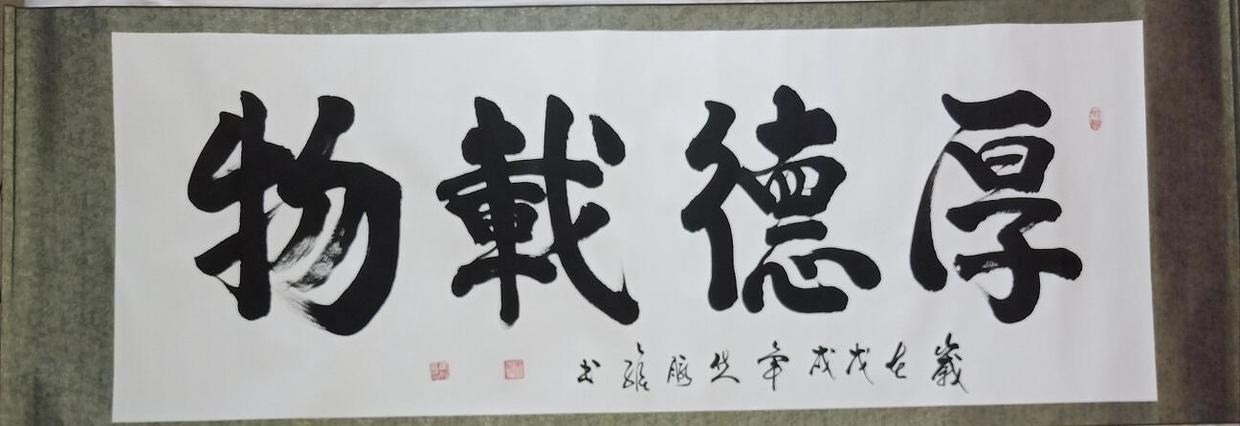 厚德載物
歲在戊戌年